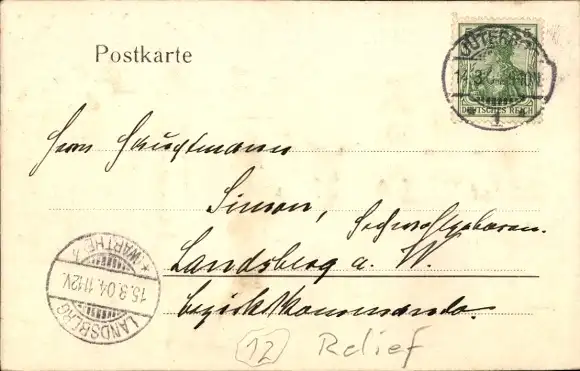 Postkarte
JÜTERBOG
14.3.
DEUTSCHES REICH
1
Herrn Hauptmann
Simon, Hochwohlgeboren.
Landsberg a. W.
Bezirkskommando.
LANDSBERG
* (WARTHE)
15.3.04.11-12V.
12 Relief